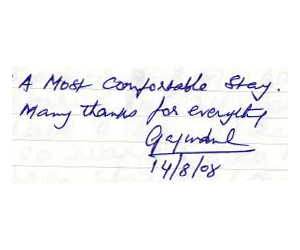 A Most Comfortable Stay.
Many thanks for everything
14/8/08